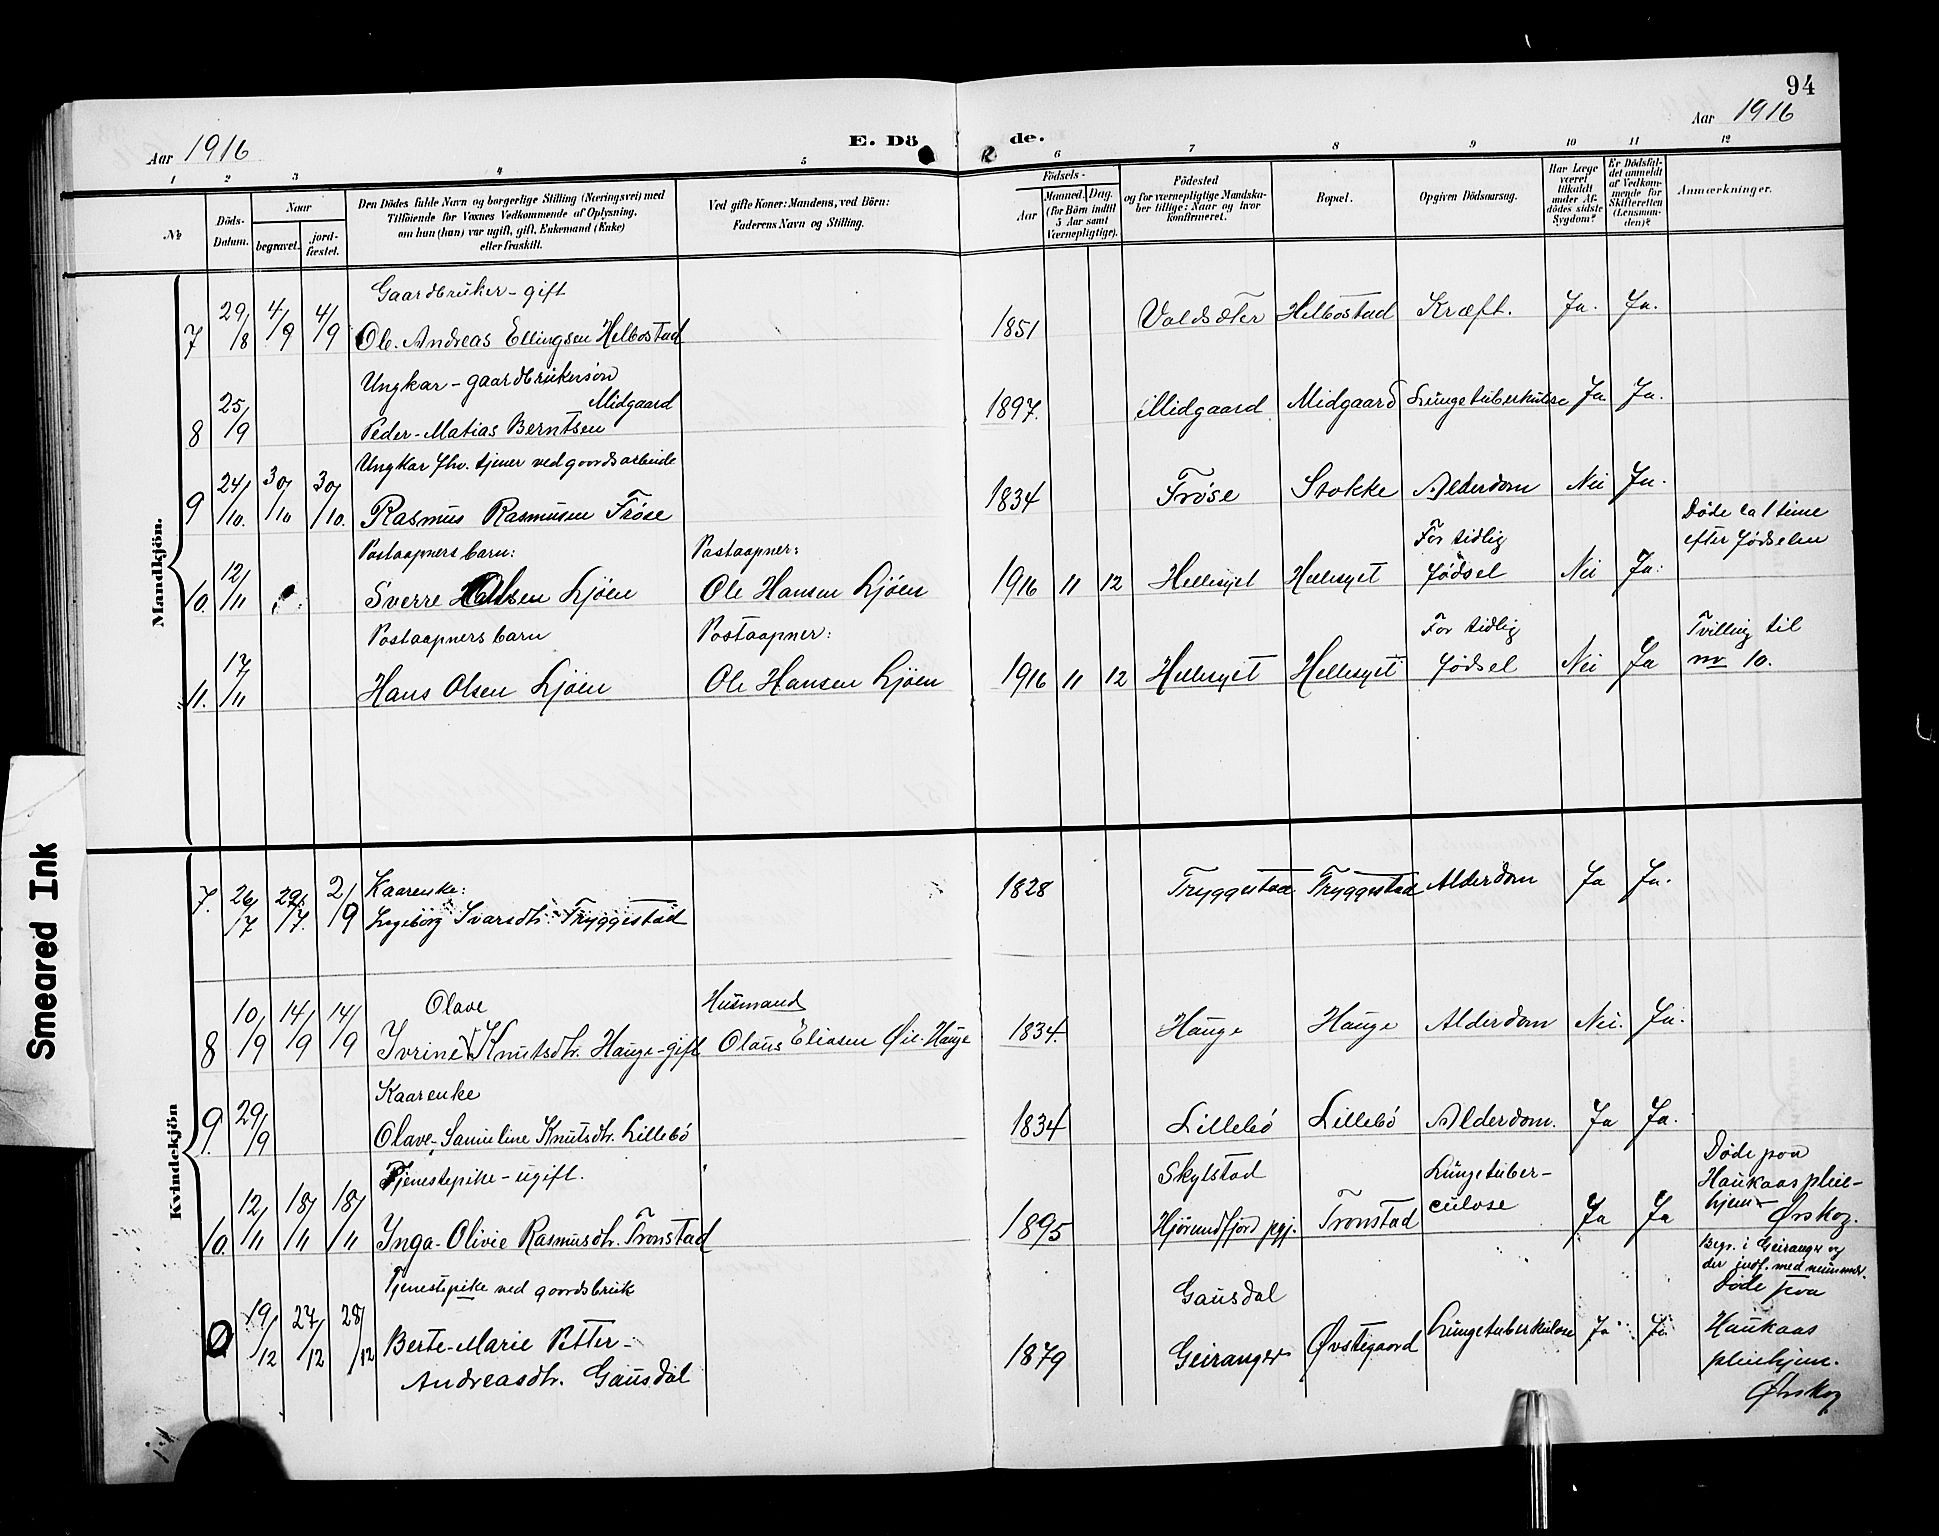 94
Aar 1916
E. Döde.
Aar 1916
1 2 3 4 5 6 7 8 9 10 11 12
№
Döds-Datum.
Naar
begravet.
jord-fæstet.
Den Dödes fulde Navn og borgerlige Stilling (Næringsvei) med
Tilföiende for Voxnes Vedkommende af Oplysning,
om hun (han) var ugift, gift, Enkemand (Enke)
eller fraskilt.
Ved gifte Koner: Mandens, ved Börn:
Faderens Navn og Stilling.
Födsels-
Aar
Maaned. Dag.
(for Börn indtil
5 Aar samt
Værnepligtige).
Födested
og for værnepligtige Mandska-
ber tillige: Naar og hvor
konfirmeret.
Bopæl.
Opgiven Dödsaarsag.
Har Læge
været
tilkaldt
under Af-
dödes sidste
Sygdom?
Er Dödsfal-
det anmeldt
af Vedkom-
mende for
Skifteretten
(Lensman-
den)?
Anmærkninger.
Mandkjön.
Gaardbruker - gift
7 29/8 4/9 4/9 Ole Andreas Ellingsen Helbostad 1851 Voldsæter Helbostad Kræft. Ja. Ja.
Ungkar - gaardbrukersøn
Midgaard
8 25/9 Peder-Matias Berntsen 1897. Midgaard Midgaard Lungetuberkulose Ja Ja.
Ungkar fhv. tjener ved goordsarbeide
9 24/10. 30/10 30/10. Rasmus Rasmusen Frøse 1834 Frøse Stokke Alderdom Nei Ja.
Postaapners barn: Postaapner: For tidlig Døde ca 1 time
efter fødselen
10. 12/11 Sverre Olsen Ljøen Ole Hansen Ljøen 1916 11 12 Hellesylt Hellesylt fødsel Nei Ja.
Postaapners barn Postaapner: For tidlig Tvilling til
11. 17/11 Hans Olsen Ljøen Ole Hansen Ljøen 1916 11 12 Hellesylt Hellesylt fødsel Nei Ja nr 10.
Smeared Ink
Kvindekjön
Kaarenke:
7. 26/7 29/7. 2/9 Ingeborg Ivarsdtr. Tryggestad 1828 Tryggestad Tryggestad Alderdom Ja Ja.
Olave Husmand
8 10/9 14/9 14/9 Ivrine Knutsdtr. Hauge - gift Olaus Eliasen Øie-Hauge 1834. Hauge Hauge Alderdom Nei. Ja.
Kaarenke
9. 29/9 Olave-Samueline Knutsdtr. Lillebø 1834 Lillebø Lillebø Alderdom. Ja Ja.
Tjenestepike - ugift. Skylstad Lungetuber- Døde paa
Haukaas pleie-
10. 12/11 18/11 18/11 Inga-Olivie Rasmusdtr. Tronstad 1895 Hjørundfjord pgj. Tronstad culose Ja Ja hjem - Ørskog.
Begr. i Geiranger og
der indf. med nummer.
Tjenestepike ved goordsbruk Gausdal Døde paa
0 19/12 27/12 28/12 Berte-Marie Petter- 1879 Geiranger Øvstegaard Lungetuberkulose Ja Ja Haukaas
Andreasdtr. Gausdal pleiehjem.
Ørskog